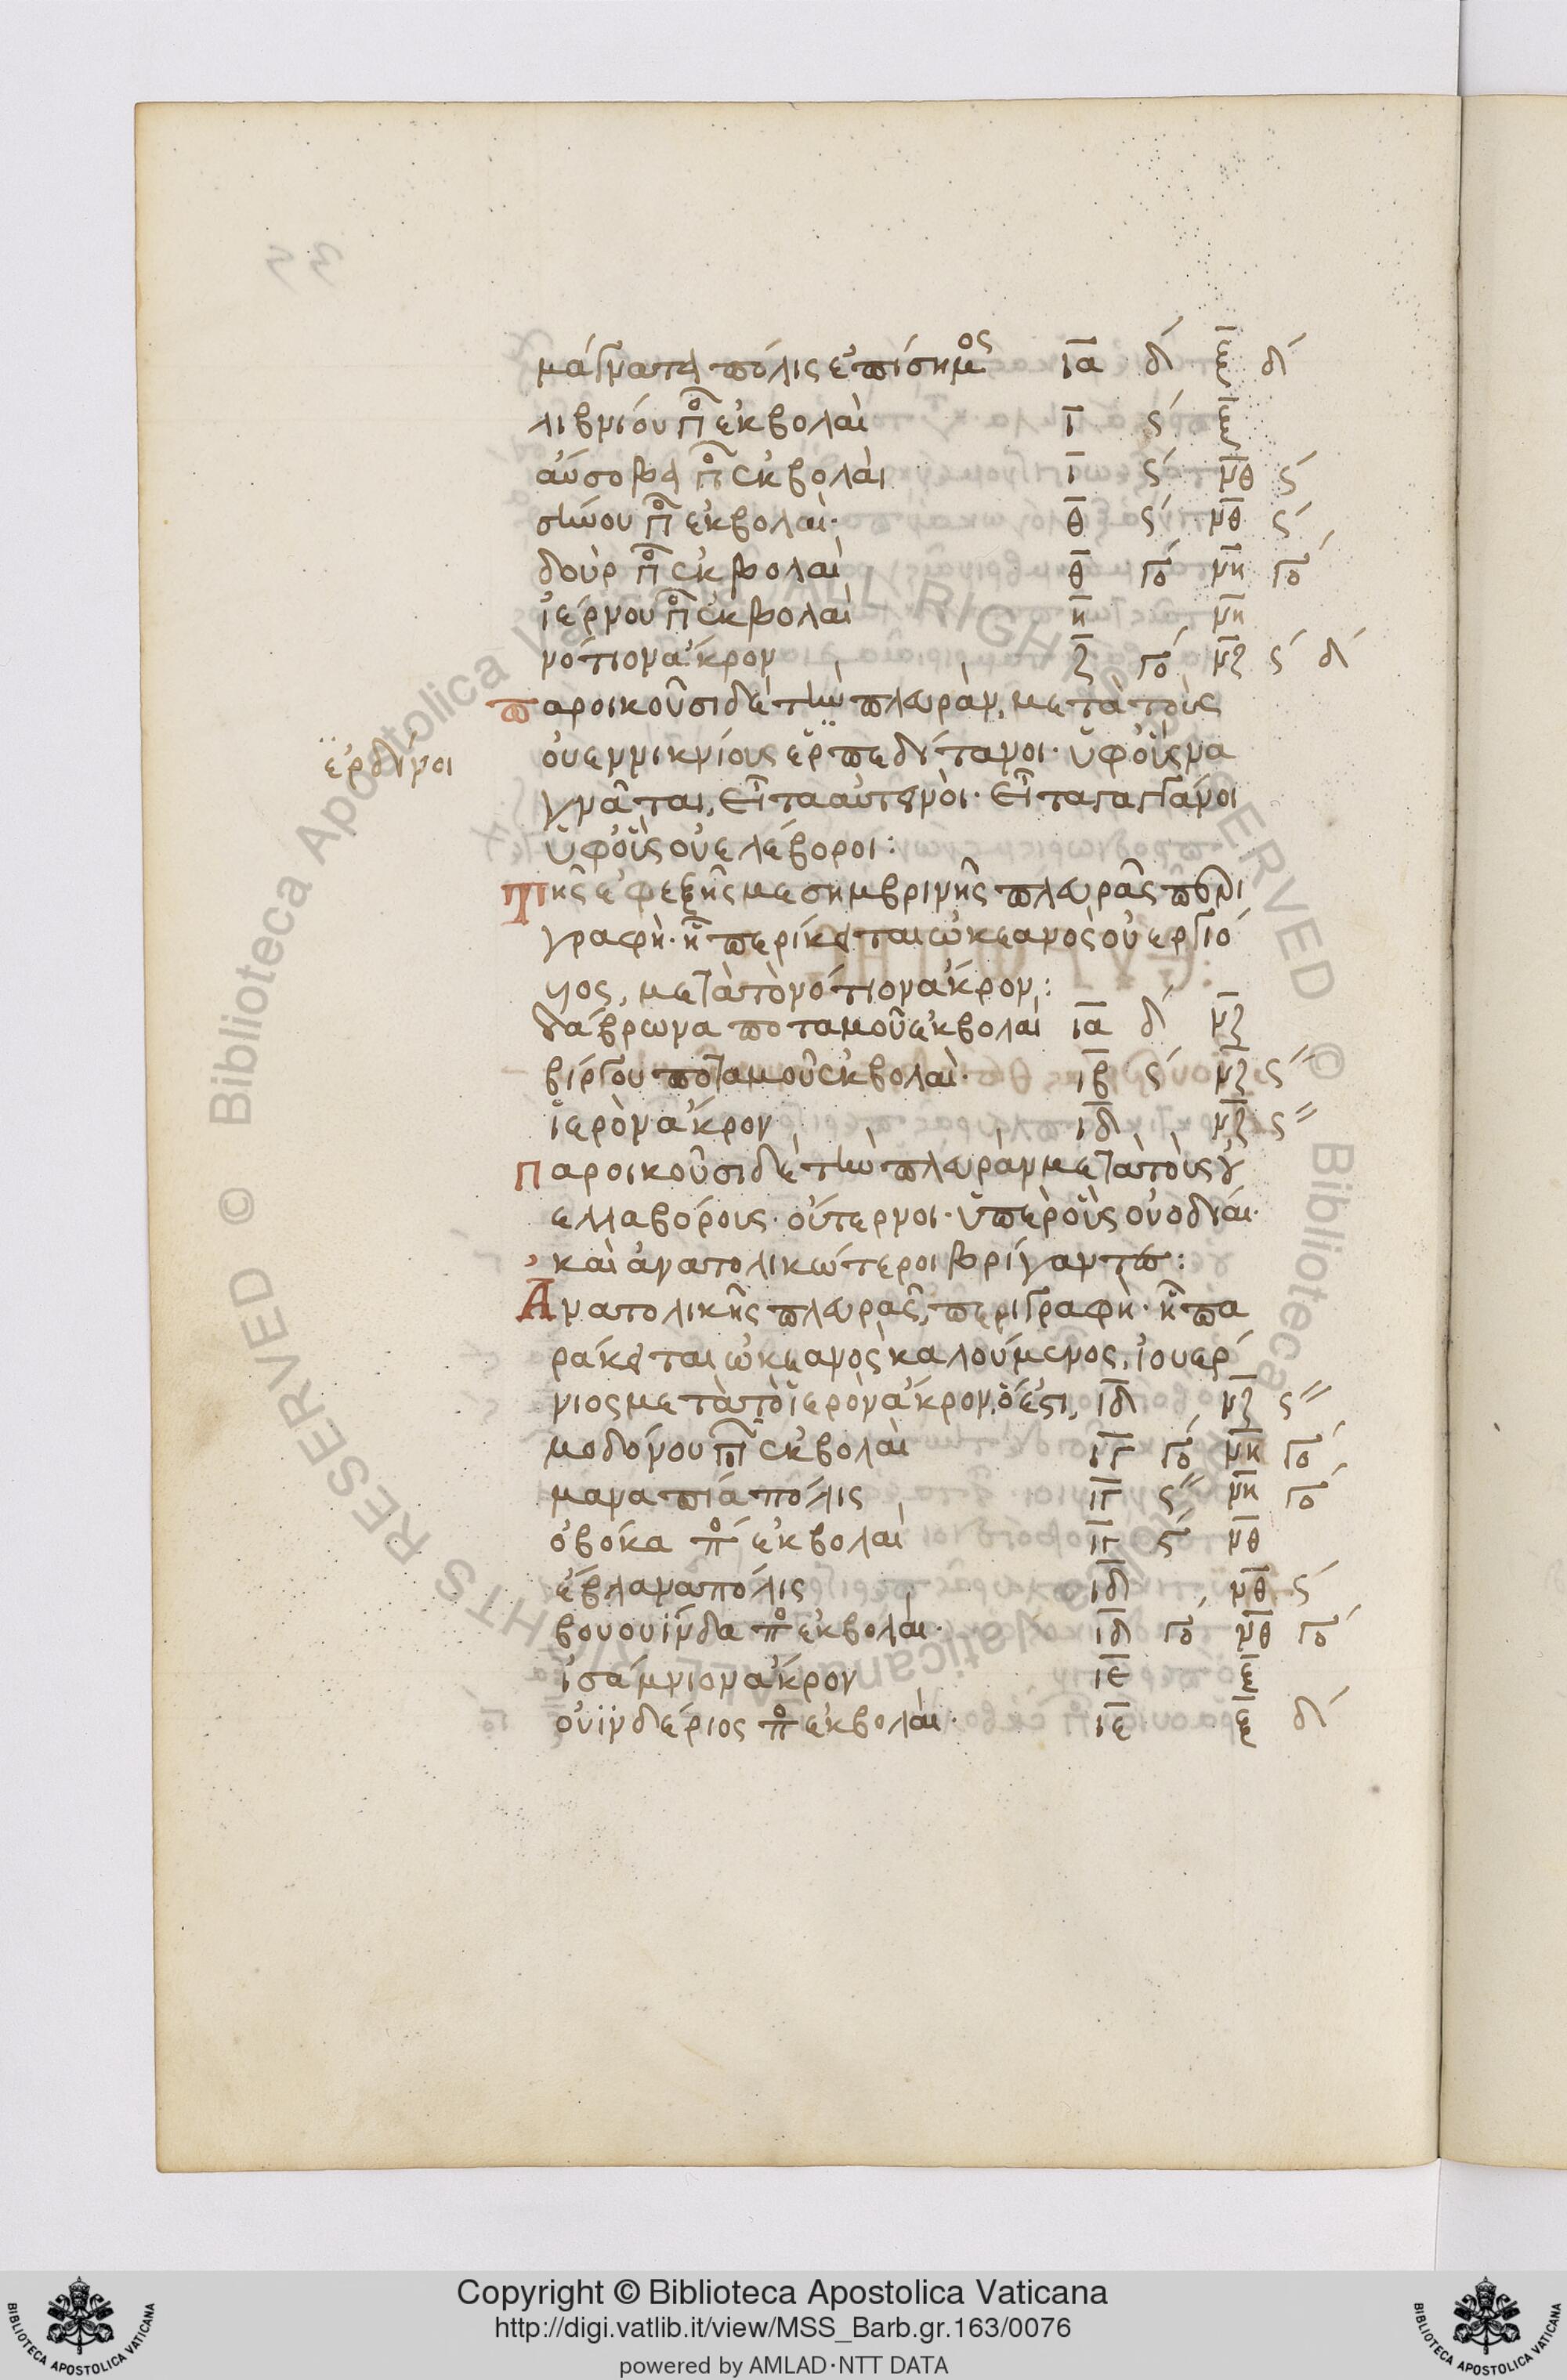 μάγνατα πόλις ἐπίσημος ια δ´ ξ δ´
λιβνίου π̅ο̅ ἐκβολαὶ ι ϛ´ ξ
αὐσοβα π̅ο̅ ἐκβολὰι ι ϛ´ νθ ϛ´
σήνου π̅ο̅ ἐκβολαὶ· θ ϛ´ νθ ϛ´
δοὺρ π̅ο̅ ἐκβολαὶ θ γο´ νη γο´
ἰέρνου π̅ο̅ ἐκβολαὶ η νη
νότιον ἄκρον ζ γο´ νζ ϛ´ δ´
παροικοῦσι δὲ τὴν πλευρὰν, μετὰ τοὺς
ἐρδίνοι
ὀυεννικνίους ἐρπεδίτανοι· ὑφ᾽ οὓς μα
γνᾶται, εἶτα αὐτεινὸι· εἶτα γαγγάνοι
ὑφ᾽ οὓς οὐελέβοροι:
Τῆς ἐφεξῆς μεσημβρινῆς πλευρᾶς περι
γραφὴ· ἧ περίκειται ὠκεανὸς οὐεργιό
νιος, μετὰ τὸ νότιον ἄκρον:
δάβρωνα ποταμοῦ ἐκβολαὶ ια δ´ νζ
βίργου ποταμοῦ ἐκβολαὶ· ιβ ϛ´ νζ ϛ´´
ἱερὸν ἄκρον ιδ νζ ϛ´´
παροικοῦσι δὲ τὴν πλευρὰν μετὰ τοὺς ὐ
ελλαβόρους· οὔτερνοι· ὑπὲρ οὓς οὐοδίαι·
καὶ ἀνατολικώτεροι βρίγαντες:
Ανατολικῆς πλευρᾶς, περιγραφὴ· ἧ πα
ράκειται ὠκεανὸς καλούμενος, ἰουερ
νιος μετὰ τὸ ἱερὸν ἄκρον, ὅ ἐστι, ιδ νζ ϛ´´
μοδόνου π̅ο̅ ἐκβολαὶ ιγ γο´ νη γο´
μαναπία πόλις ιγ ϛ´´ νη γο´
ὀβόκα π̅ο̅ ἐκβολαὶ ιγ ϛ´ νθ
ἔβλανα πόλις ιδ νθ ϛ´
βουουίνδα π̅ο̅ ἐκβολαὶ· ιδ γο´ νθ γο´
ἰσάμνιον ἄκρον ιε ξ
οὐϊνδέριος π̅ο̅ ἐκβολαὶ· ιε ξ δ´
Copyright © Biblioteca Apostolica Vaticana
http://digi.vatlib.it/view/MSS_Barb.gr.163/0076
powered by AMLAD·NTT DATA